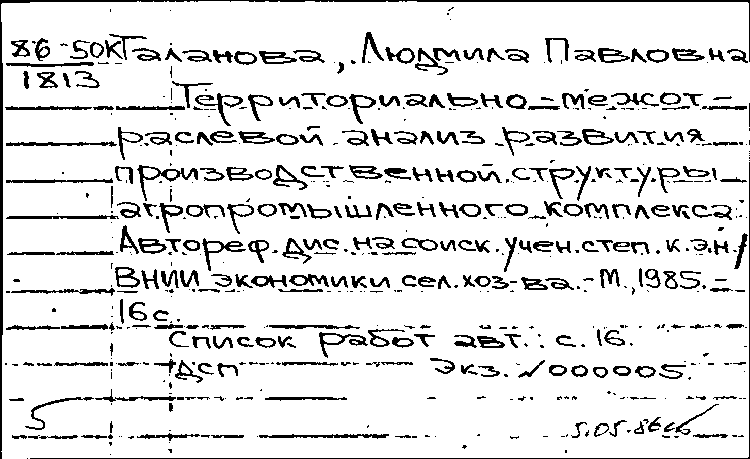 86-50К Галанова, Людмила Павловна
1813
Территориально-межот-
раслевой анализ развития
производственной структуры
агропромышленного комплекса:
Автореф. дис. на соиск. учен. степ. к.э.н./
ВНИИ экономики сел. хоз-ва. - М., 1985. -
16 с.
Список работ авт.: с. 16.
ДСП Экз. √000005.
5 5.05.86